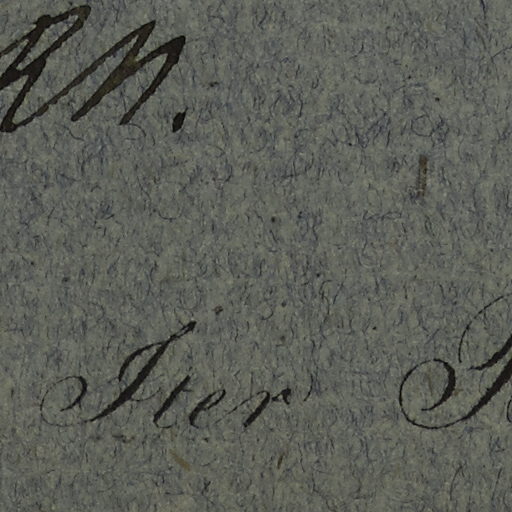 RM.
Iter